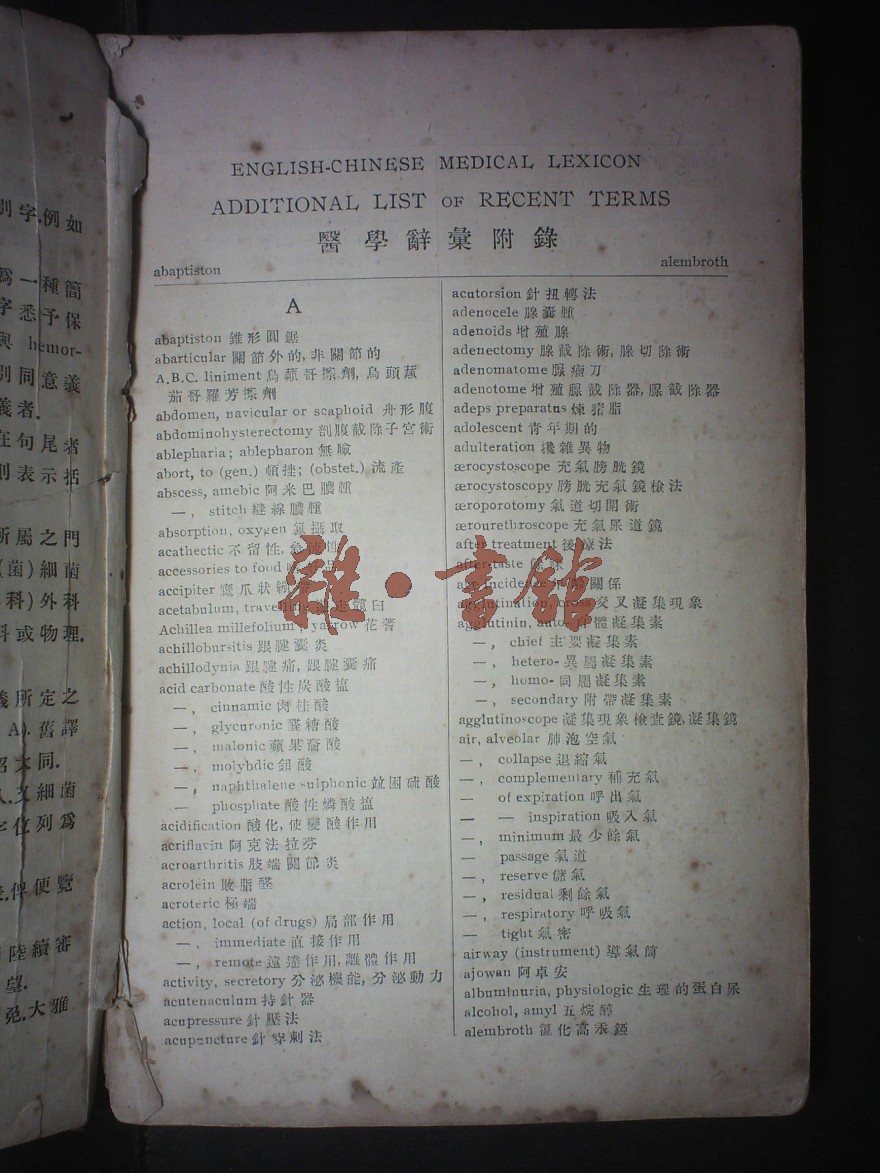 別字.例如
爲一種簡
字悉予保
與 hemor-
別同意義
義者.
在句尾者
則表示括
所屬之門
(菌)細菌
科)外科
科或物理.
義所定之
A). 舊譯
大同.
又細菌
位列爲
俾便覽
陸續審
望.
大雅
ENGLISH-CHINESE MEDICAL LEXICON
ADDITIONAL LIST OF RECENT TERMS
醫學辭彙附錄
abaptiston
alembroth
A
abaptiston 錐形圓鋸
abarticular 關節外的, 非關節的
A.B.C. liniment 烏頭
茄哥羅芳擦劑
abdomen, navicular or scaphoid 舟形腹
abdominohysterectomy 剖腹截除子宮術
ablepharia; ablepharon 無瞼
abort, to (gen.) 頓挫; (obstet.) 流產
abscess, amebic 阿米巴膿腫
—, stitch 縫線膿腫
absorption, oxygen 氧攝取
acathectic 不留性,
accessories to food
accipiter 鷹爪狀
acetabulum, travelling
Achillea millefolium; yarrow 花蓍
achillobursitis 跟腱囊炎
achillodynia 跟腱痛, 跟腱囊痛
acid carbonate 酸性炭酸塩
—, cinnamic 肉桂酸
—, glycuronic 醛糖酸
—, malonic 蘋果酸
—, molybdic 鉬酸
—, naphthalene sulphonic 硫酸
— phosphate 酸性燐酸塩
acidification 酸化, 使變酸作用
acriflavin 阿克法拉芬
acroarthritis 肢端關節炎
acrolein 敗脂醛
acroteric 極端
action, local (of drugs) 局部作用
—, immediate 直接作用
—, remote 遠達作用, 離體作用
activity, secretory 分泌機能, 分泌動力
acutenaculum 持針器
acupressure 針壓法
acupuncture 針穿刺法
acutorsion 針扭轉法
adenocele 腺囊腫
adenoids 增殖腺
adenectomy 腺截除術, 腺切除術
adenomatome 腺瘤刀
adenotome 增殖腺截除器, 腺截除器
adeps preparatus 煉豬脂
adolescent 青年期的
adulteration 攙雜異物
ærocystoscope 充氣膀胱鏡
ærocystoscopy 膀胱充氣鏡檢法
æroporotomy 氣道切開術
ærourethroscope 充氣尿道鏡
after-treatment 後療法
after-taste 餘味
age incidence 關係
agglutination, cross 交叉凝集現象
agglutinin, auto- 自體凝集素
—, chief 主要凝集素
—, hetero- 異屬凝集素
—, homo- 同屬凝集素
—, secondary 附帶凝集素
agglutinoscope 凝集現象檢查鏡, 凝集鏡
air, alveolar 肺泡空氣
—, collapse 退縮氣
—, complementary 補充氣
— of expiration 呼出氣
— — inspiration 吸入氣
—, minimum 最少餘氣
— passage 氣道
—, reserve 儲氣
—, residual 剩餘氣
—, respiratory 呼吸氣
— tight 氣密
airway (instrument) 導氣筒
ajowan 阿卓安
albuminuria, physiologic 生理的蛋白尿
alcohol, amyl 五烷醇
alembroth 氯化高汞銨
雜·書館